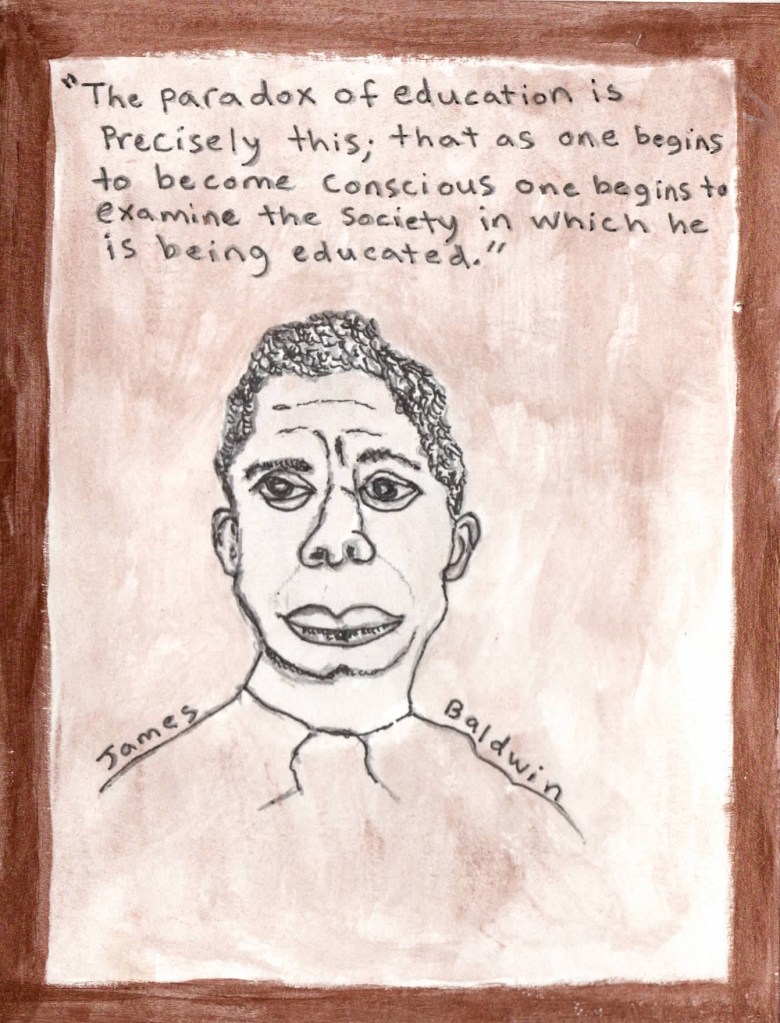 "The paradox of education is
Precisely this; that as one begins
to become conscious one begins to
examine the society in which he
is being educated."
James Baldwin